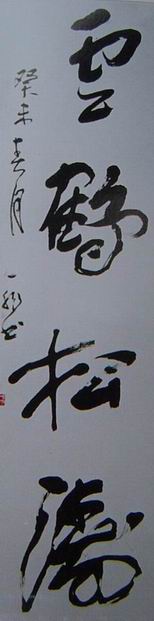 雲鶴松濤
癸未春月
一聊书